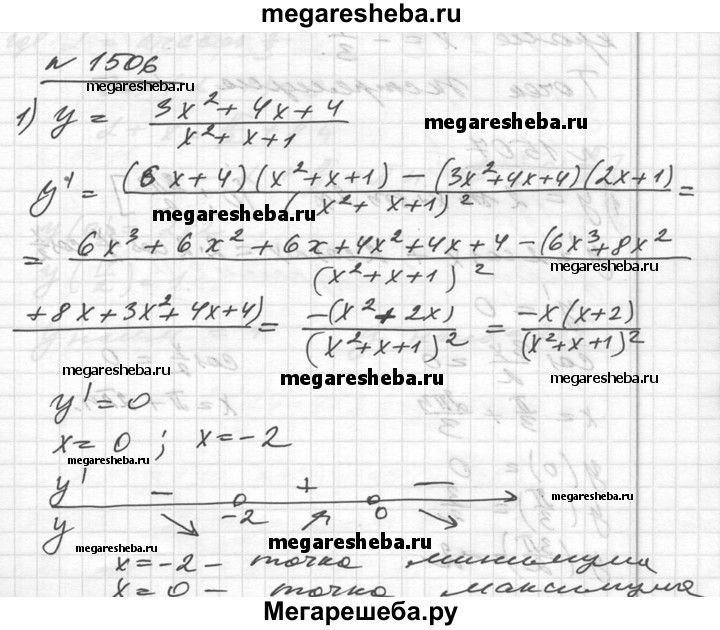 megaresheba.ru
№ 1506
megaresheba.ru
1) y = (3x² + 4x + 4)/(x² + x + 1)
megaresheba.ru
y' = ((6x + 4)(x² + x + 1) − (3x² + 4x + 4)(2x + 1))/(x² + x + 1)² =
megaresheba.ru
= (6x³ + 6x² + 6x + 4x² + 4x + 4 − (6x³ + 8x²
(x² + x + 1)²
+ 8x + 3x² + 4x + 4) = −(x² + 2x)/(x² + x + 1)² = −x(x + 2)/(x² + x + 1)²
megaresheba.ru
megaresheba.ru
megaresheba.ru
y' = 0
x = 0; x = −2
megaresheba.ru
y' − + −
−2 0
megaresheba.ru
y ↘ ↗ ↘
megaresheba.ru
megaresheba.ru
x = −2 − точка минимума
x = 0 − точка максимума
Мегарешеба.ру